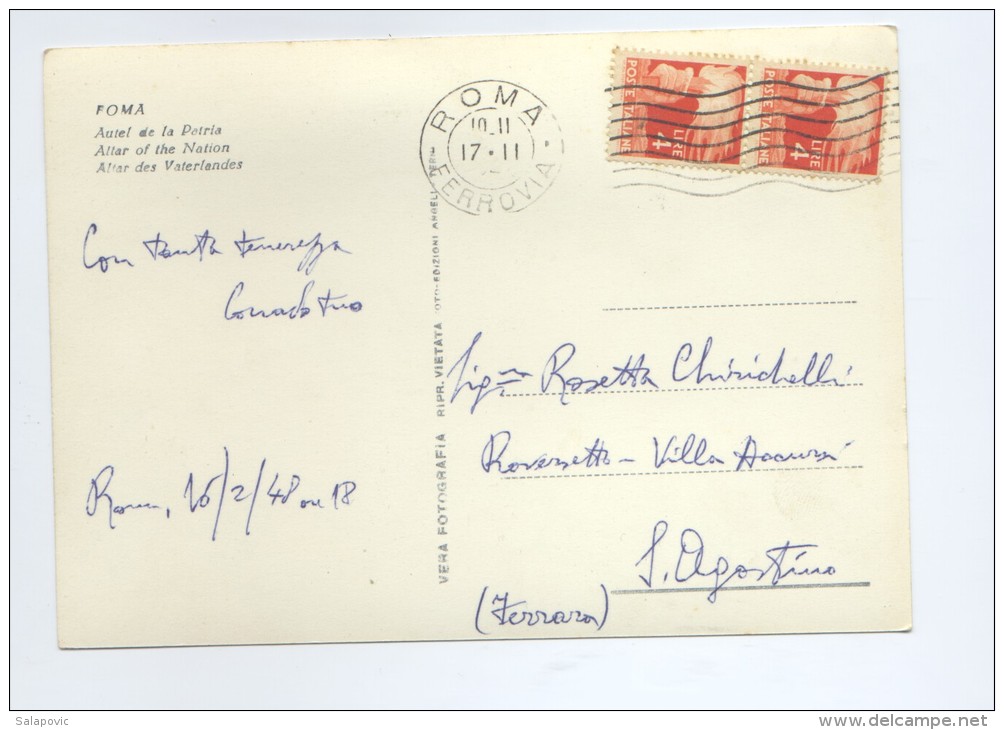 ROMA
Autel de la Patria
Altar of the Nation
Altar des Vaterlandes
ROMA
FERROVIA
10 II
17 • II
POSTE ITALIANE
LIRE 4
POSTE ITALIANE
LIRE 4
Con tanta tenerezza
Corrado tuo
Roma, 16/2/48 ore 18
VERA FOTOGRAFIA RIPR. VIETATA
Sig.na Rosetta Chirichelli
Roversetto - Villa
S. Agostino
(Ferrara)
Salapovic
www.delcampe.net